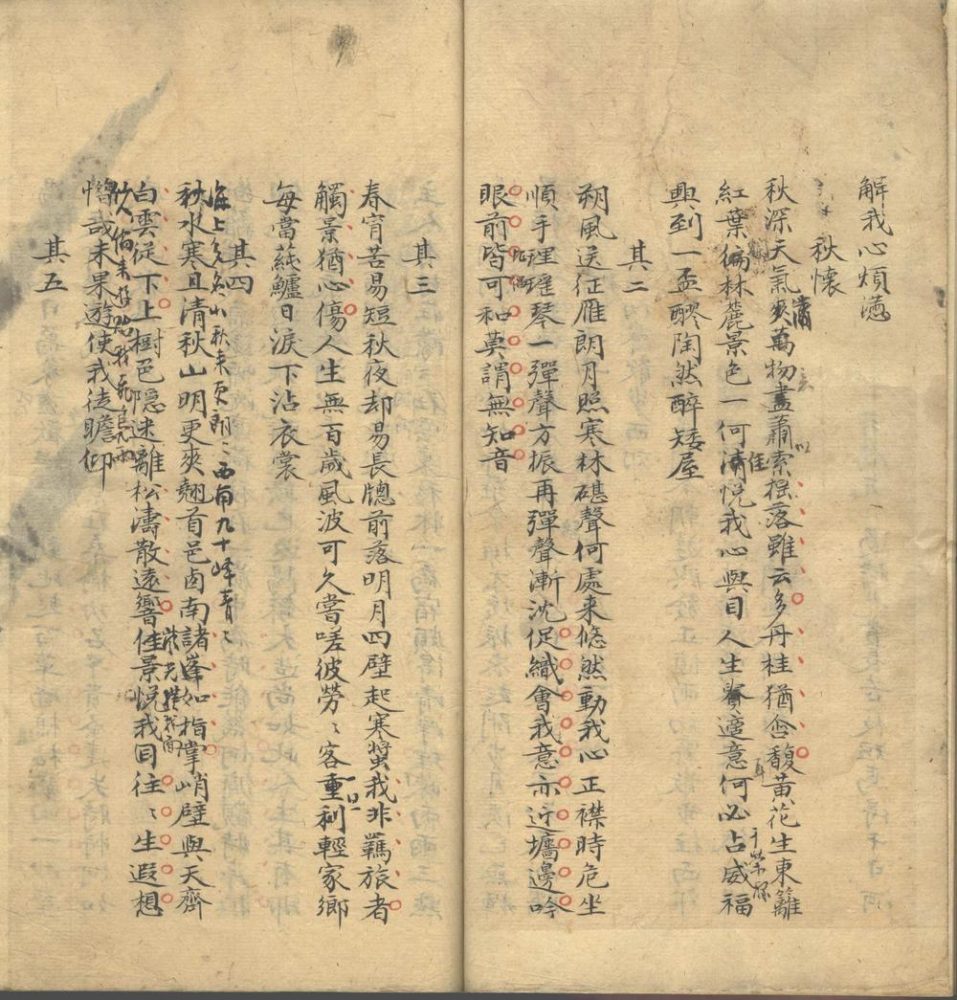 解我心煩懣
秋懷
秋深天氣爽萬物盡蕭索搖落雖云多丹桂猶含馥黃花生東籬
紅葉徧林麓景色一何清悅我心與目人生賽適意何必占威福
興到一盃醪陶然醉矮屋
其二
朔風送征雁朗月照寒林碪聲何處來悠然動我心正襟時危坐
順手理瑤琴一彈聲方振再彈聲漸沈促織會我意亦近墻邊吟
眼前皆可和莫謂無知音
其三
春宵苦易短秋夜却易長牕前落明月四壁起寒螿我非羈旅者
觸景猶心傷人生無百歲風波可久嘗嗟彼勞〻客重利輕家鄉
每當蓴鱸日淚下沾衣裳
其四
海上多名山秋來更朗〻西南九十峰青〻
秋水寒且清秋山明更爽翹首邑卤南諸峯如指掌峭壁與天齊
白雲従下上樹色隐迷離松濤散遠響佳景悅我目往〻生遐想
惜哉未果遊使我徒瞻仰
其五